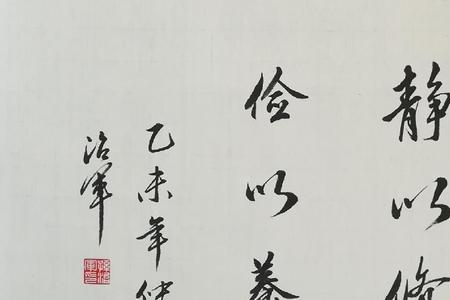 静以修
俭以养
乙未年
治军